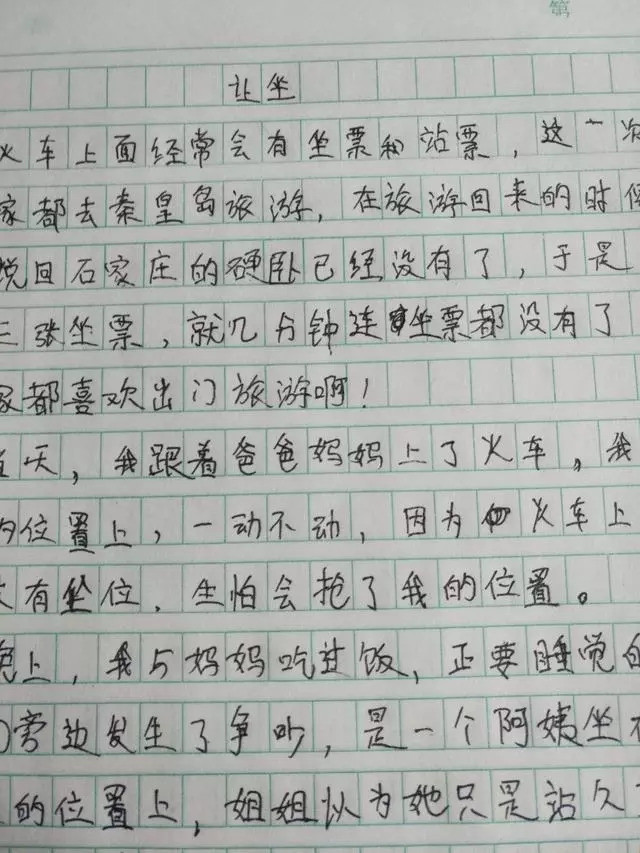 第
让坐
火车上面经常会有坐票和站票，这一次
家都去秦皇岛旅游，在旅游回来的时候
说回石家庄的硬卧已经没有了，于是
三张坐票，就几分钟连坐票都没有了
家都喜欢出门旅游啊！
天，我跟着爸爸妈妈上了火车，我
的位置上，一动不动，因为火车上
有坐位，生怕会抢了我的位置。
晚上，我与妈妈吃过饭，正要睡觉的
旁边发生了争吵，是一个阿姨坐在
的位置上，姐姐以为她只是站久了